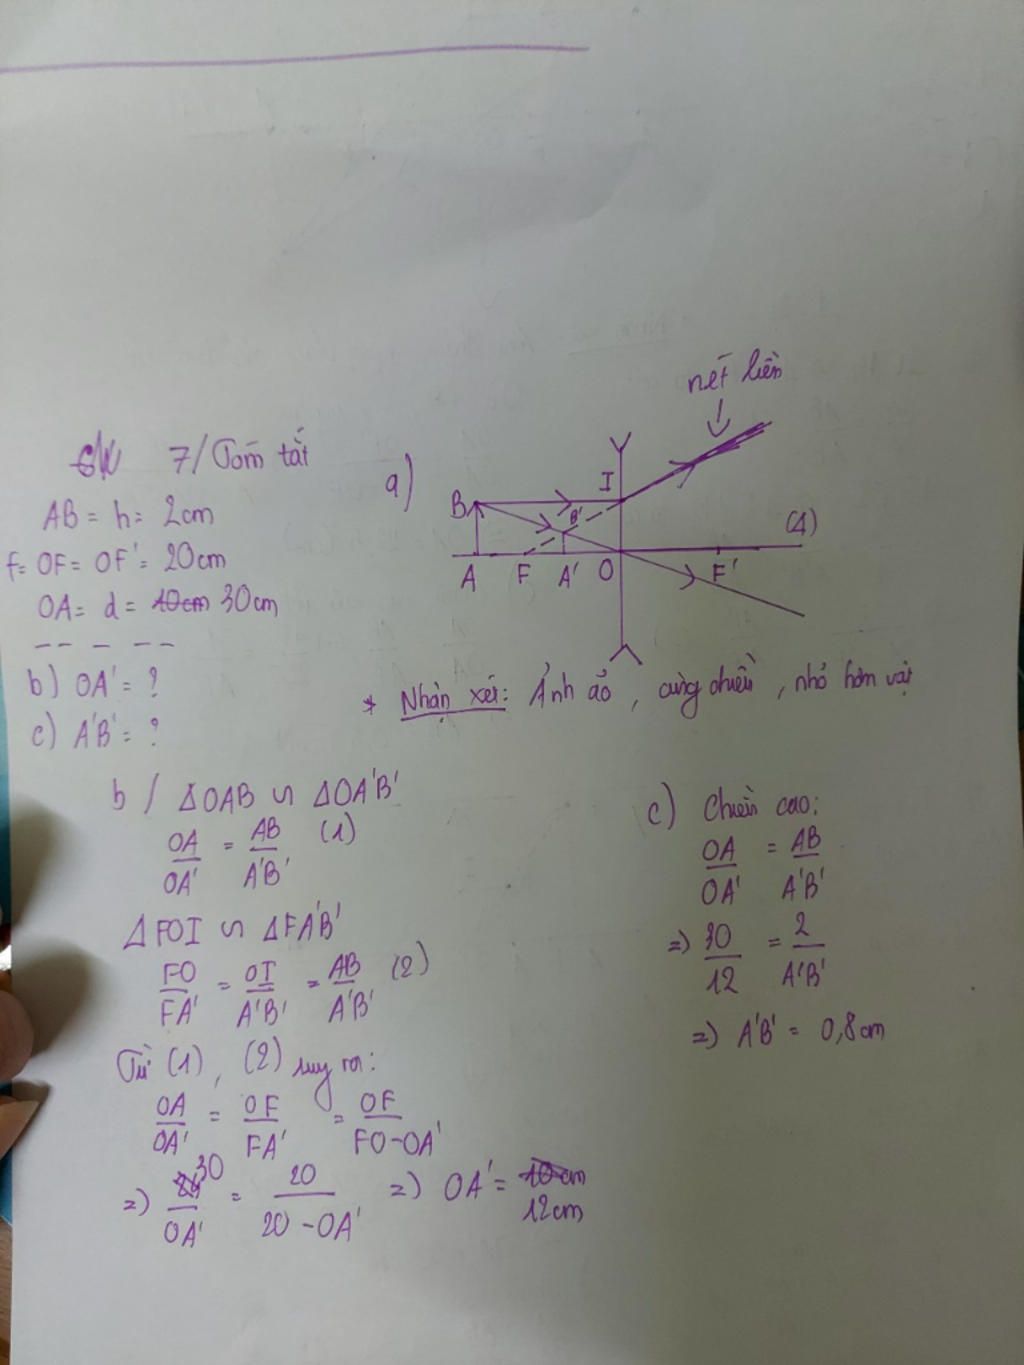 7/ Tóm tắt
AB = h = 2cm
f = OF = OF' = 20cm
OA = d = 10cm 30cm
b) OA' = ?
c) A'B' = ?
a)
nét liền
B
I
B'
(Δ)
A F A' O F'
* Nhận xét: Ảnh ảo, cùng chiều, nhỏ hơn vật
b/ ΔOAB ∽ ΔOA'B'
OA/OA' = AB/A'B' (1)
ΔFOI ∽ ΔFA'B'
FO/FA' = OI/A'B' = AB/A'B' (2)
Từ (1), (2) suy ra:
OA/OA' = OF/FA' = OF/FO-OA'
=) 30/OA' = 20/20-OA' =) OA' = 10cm
12cm
c) Chiều cao:
OA/OA' = AB/A'B'
=) 30/12 = 2/A'B'
=) A'B' = 0,8cm